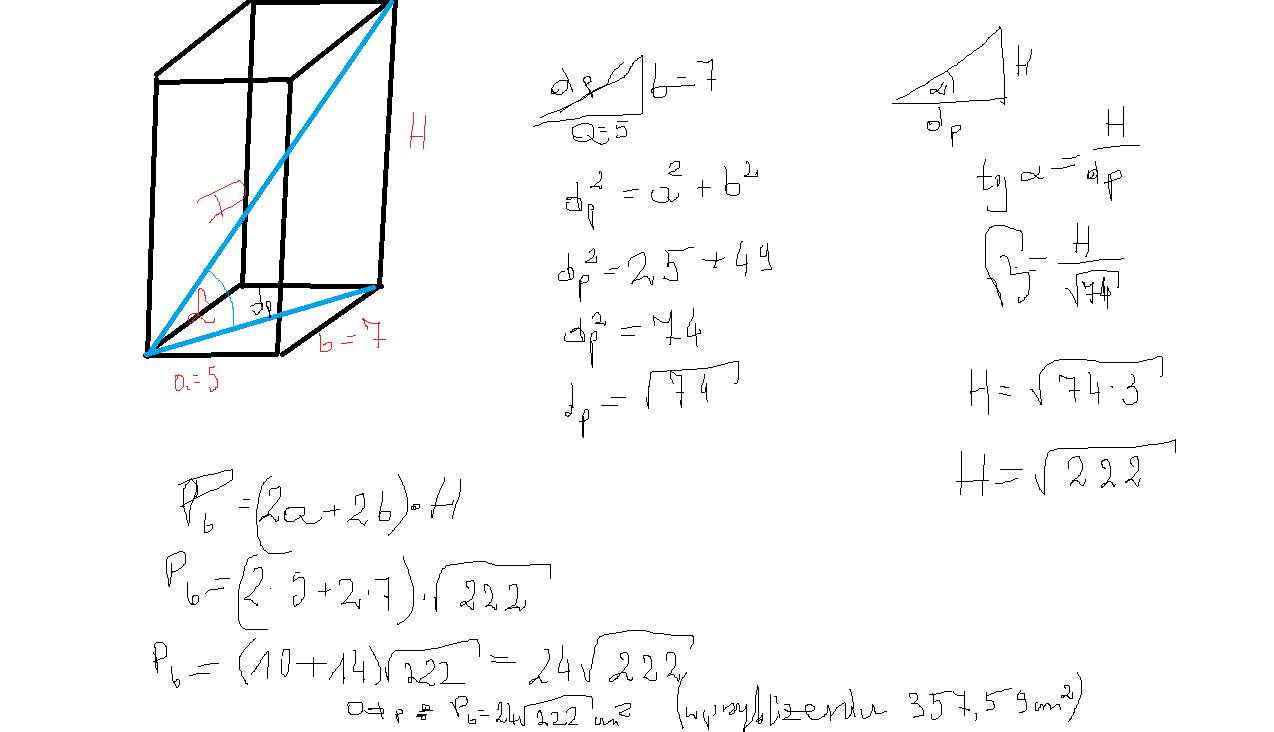 H
D
α
dp
b = 7
a = 5
dp
b = 7
a = 5
dp² = a² + b²
dp² = 25 + 49
dp² = 74
dp = √74
H
α
dp
tg α = H/dp
√3 = H/√74
H = √74·3
H = √222
Pb = (2a + 2b)·H
Pb = (2·5 + 2·7)·√222
Pb = (10 + 14)√222 = 24√222
Odp Pb = 24√222 cm² (w przybliżeniu 357,59 cm²)